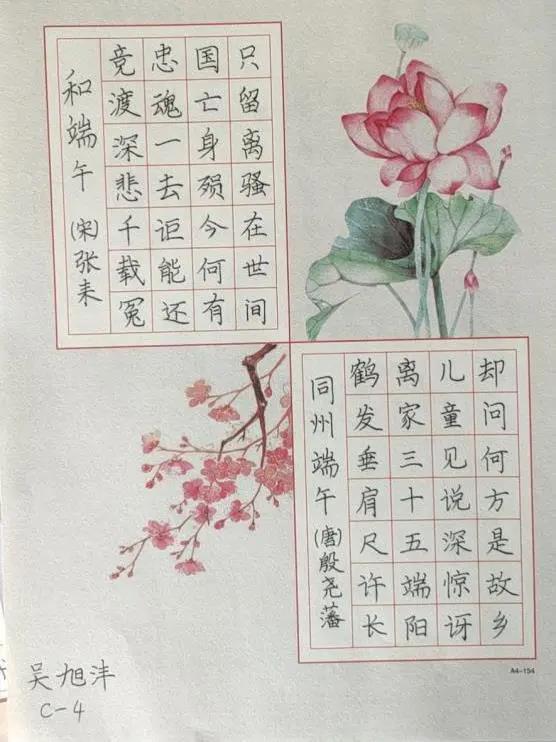 和端午
(宋)张耒
竞渡深悲千载冤
忠魂一去讵能还
国亡身殒今何有
只留离骚在世间
同州端午
(唐)殷尧藩
鹤发垂肩尺许长
离家三十五端阳
儿童见说深惊讶
却问何方是故乡
A4-154
吴旭沣
C-4